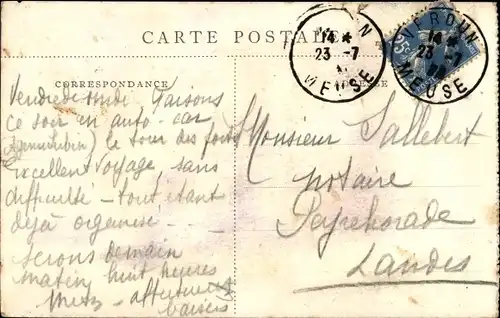 CARTE POSTALE
VERDUN
14 *
23 -7
MEUSE
VERDUN
14 *
23 -7
MEUSE
25c
CORRESPONDANCE
Vendredi midi Faisons
ce soir en auto-car
(Agence Lubin) le tour des forts
Excellent voyage, sans
difficulté - tout étant
déjà organisé.
serons demain
matin huit heures
Metz - affectueux
baisers
Monsieur Sallebert
notaire
Peyrehorade
Landes